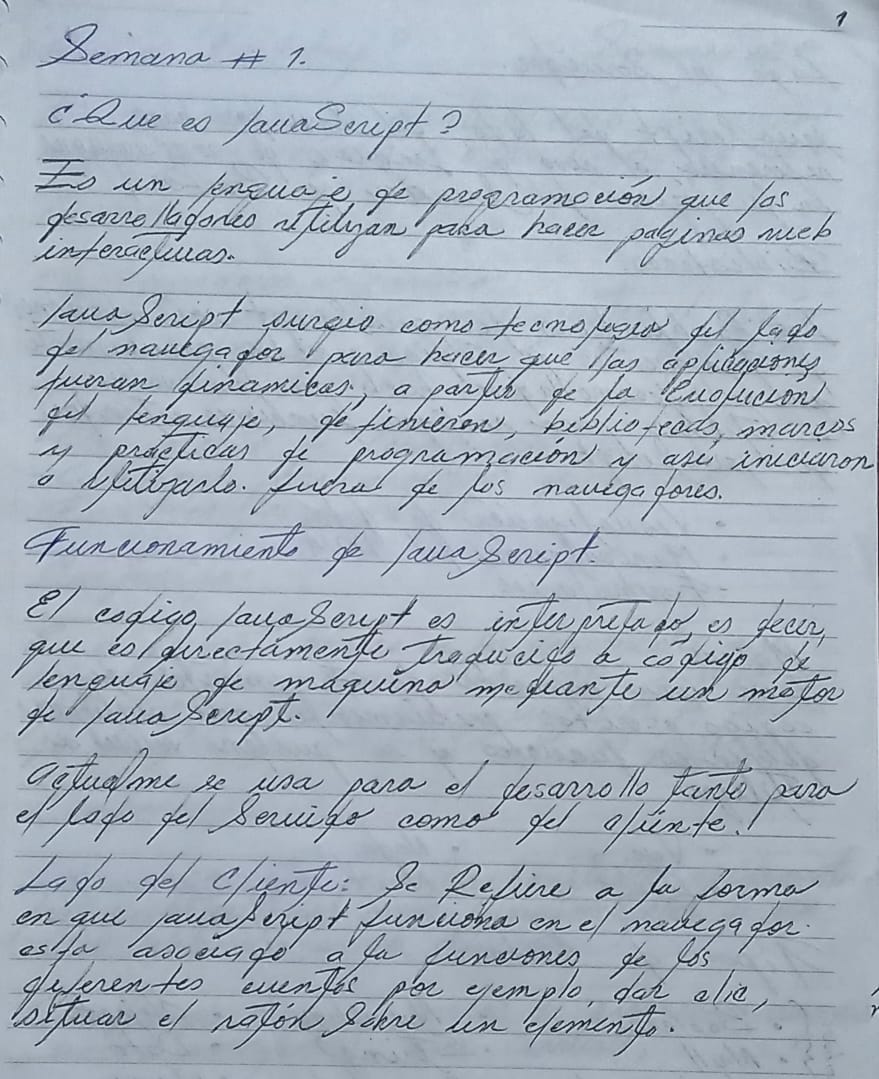 1
Semana # 1.
¿Que es JavaScript?
Es un lenguaje de programación que los
desarrolladores utilizan para hacer paginas web
interactivas.
JavaScript surgio como tecnologia del lado
del navegador para hacer que las aplicaciones
fueran dinamicas, a partir de la Evolucion
del lenguaje, definieron, bibliotecas, marcos
y practicas de programación y asi iniciaron
a utilizarlo. fuera de los navegadores.
Funcionamiento de JavaScript.
El codigo JavaScript es interpretado, es decir,
que es directamente traducido a código de
lenguaje de maquina mediante un motor
de JavaScript.
actualme se usa para el desarrollo tanto para
el lado del Servido como del cliente.
Lado del Cliente: Se Refiere a la forma
en que JavaScript funciona en el navegador.
esta asociado a la funciones de los
diferentes eventos por ejemplo, dar clic,
situar el ratón Sobre un elemento.